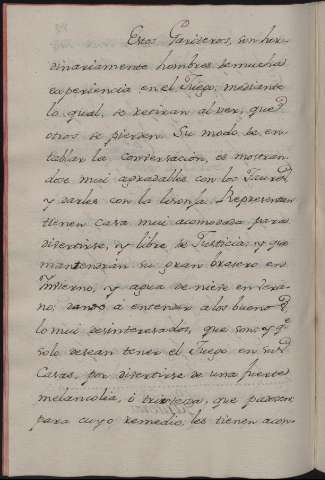 Estos Gariteros, son hor-
dinariamente hombres de mucha
experiencia en el Juego, mediante
lo qual, se retiran al ver, que
otros se pierden. Su modo de en-
tablar la conversación, es mostran-
dose mui agradables con los Taures
y darles con la lisonja. Representan
tienen Casa mui acomodada para
divertirse, y libre de Justicia; y que
mantendrán su gran brasero en
Ynvierno, y agua de nieve en Vera-
no; dando á entender a los buenos
lo mui desinteresados, que son, y qe
solo desean tener el Juego en sus
Casas, por divertirse de una fuerte
melancolía, ó tristeza, que padecen
para cuyo remedio, les tienen acon-